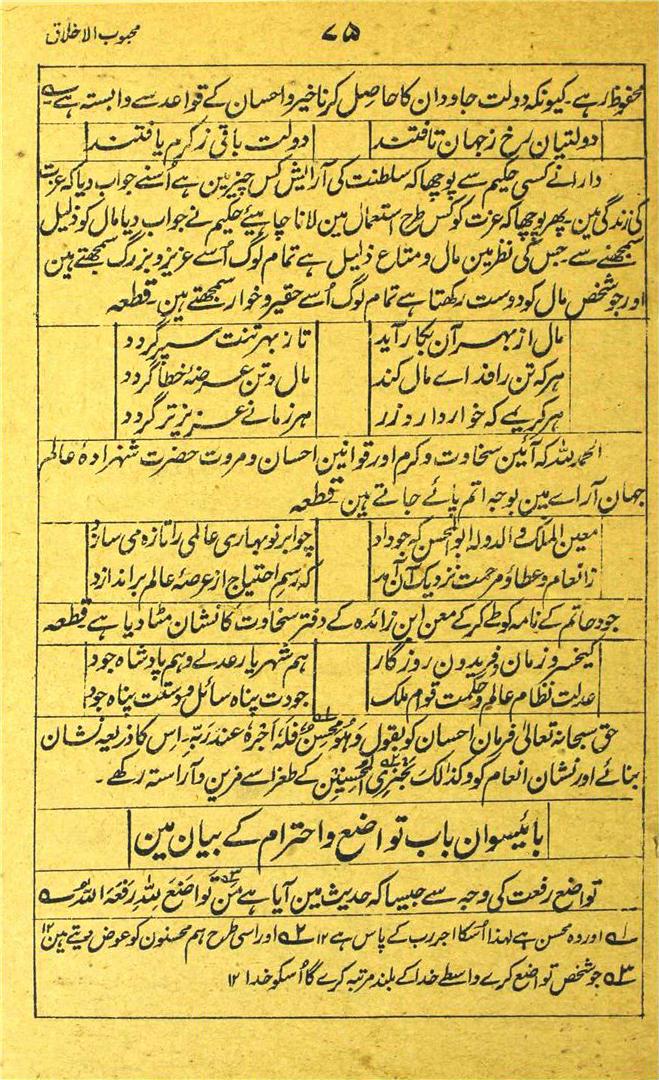 ۷۵
محبوب الاخلاق
محفوظ رہے۔ کیونکہ دولت جاودان کا حاصل کرنا خیر و احسان کے قواعد سے وابستہ ہے۔
دولتیان رخ ز جہان تافتند دولت باقی ز کرم یافتند
دارا نے کسی حکیم سے پوچھا کہ سلطنت کی آرایش کس چیز مین ہے اُسنے جواب دیا کہ عزت
کی زندگی مین۔ پھر پوچھا کہ عزت کو کس طرح استعمال مین لانا چاہیئے حکیم نے جواب دیا مال کو ذلیل
سمجھنے سے۔ جس کی نظر مین مال و متاع ذلیل ہے تمام لوگ اُسے عزیز و بزرگ سمجھتے ہین
اور جو شخص مال کو دوست رکھتا ہے تمام لوگ اُسے حقیر و خوار سمجھتے ہین۔ قطعہ
مال از بہر آن بکار آید تا ز بہر تنت سپر گردد
ہر کہ تن را فداے مال کند مال و تن عرضۂ خطر گردد
ہر کریمے کہ خوار دارد زر ہر زمانے عزیز تر گردد
الحمد للہ کہ آئین سخاوت و کرم اور قوانین احسان و مروت حضرت شہزادۂ عالم
جہان آراے مین بوجہ اتم پائے جاتے ہین۔ قطعہ
معین الملک والدولہ ابوالمحسن کہ جود او چو ابر نو بہاری عالمی را تازہ می سازد
ز انعام و عطاؤ مرحمت نزدیک آن آمد کہ رسم احتیاج از عرصۂ عالم بر اندازد
جود حاتم کے نامہ کو طے کر کے معن ابن زائدہ کے دفتر سخاوت کا نشان مٹا دیا ہے قطعہ
کیخسرو زمان و فریدون روزگار ہم شہریار عدل و ہم پادشاہ جود
عدلت نظام عالم و حکمت قوام ملک جودت پناہ سائل و دستت پناہ جود
حق سبحانہ تعالیٰ فرمان احسان کو بقول وَہُوَ مُحْسِنٌ فَلَہٗ اَجْرُہٗ عِنْدَ رَبِّہٖ۔ اس کا ذریعہ نشان
بنائے اور نشان انعام کو وکذالک نجزی المحسنین کے طغرا سے مزین و آراستہ رکھے۔
بائیسوان باب تواضع و احترام کے بیان مین
تواضع رفعت کی وجہ ہے جیسا کہ حدیث مین آیا ہے مَنْ تَوَاضَعَ لِلہِ رَفَعَہُ اللہُ
۱؎ اور وہ محسن ہے لھذا اُسکا اجر رب کے پاس ہے ۱۲ ۲؎ اور اسی طرح ہم محسنون کو عوض دیتے ہین ۱۲
۳؎ جو شخص تواضع کرے واسطے خدا کے بلند مرتبہ کرے گا اُسکو خدا ۱۲